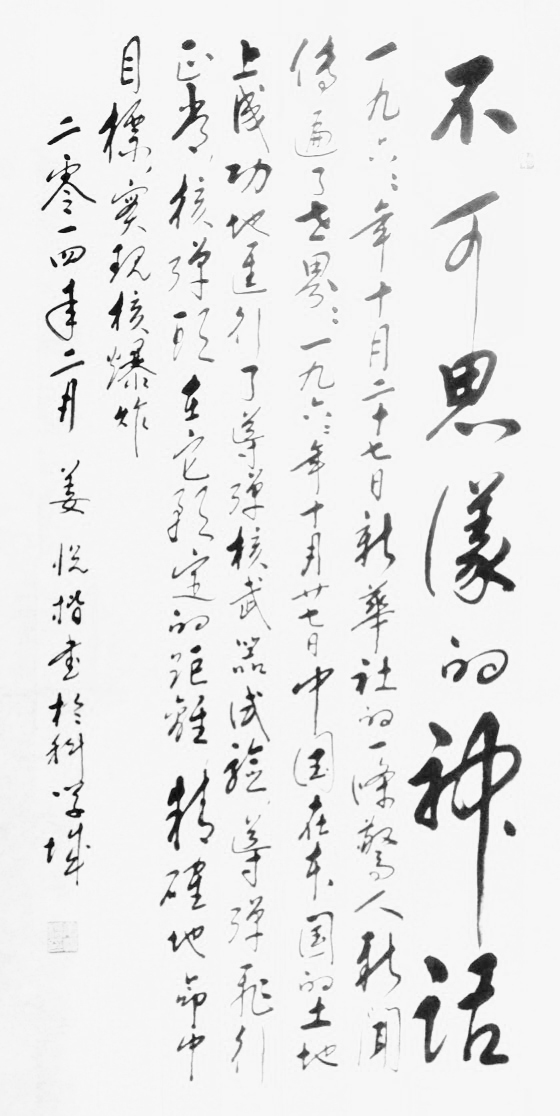 不可思議的神话
一九六六年十月二十七日新華社的一條驚人新聞
傳遍了世界：一九六六年十月廿七日中国在本国的土地
上成功地進行了導彈核武器試驗，導彈飛行
正常，核彈頭在它預定的距離，精確地命中
目標，實現核爆炸
二零一四年二月 姜悅楷書於科學城